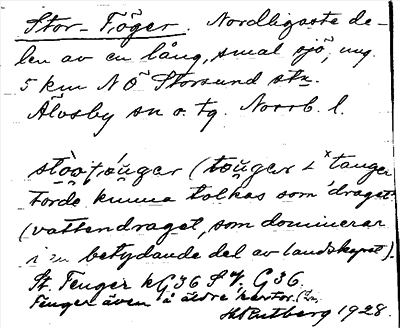 Stor-Töger. Nordligaste de-
len av en lång, smal sjö, ung.
5 km NÖ Storsund stn.
Älvsby sn o. tg. Norrb. l.
stòo̯tǫ́u̯ger (tǫu̯ger ∠ ˣtauger
torde kunna tolkas som 'draget'
(vattendraget, som dominerar
i en betydande del av landskapet).
St. Teuger kG36 G36.
Teuger även å äldre kartor.
Rutberg 1928.